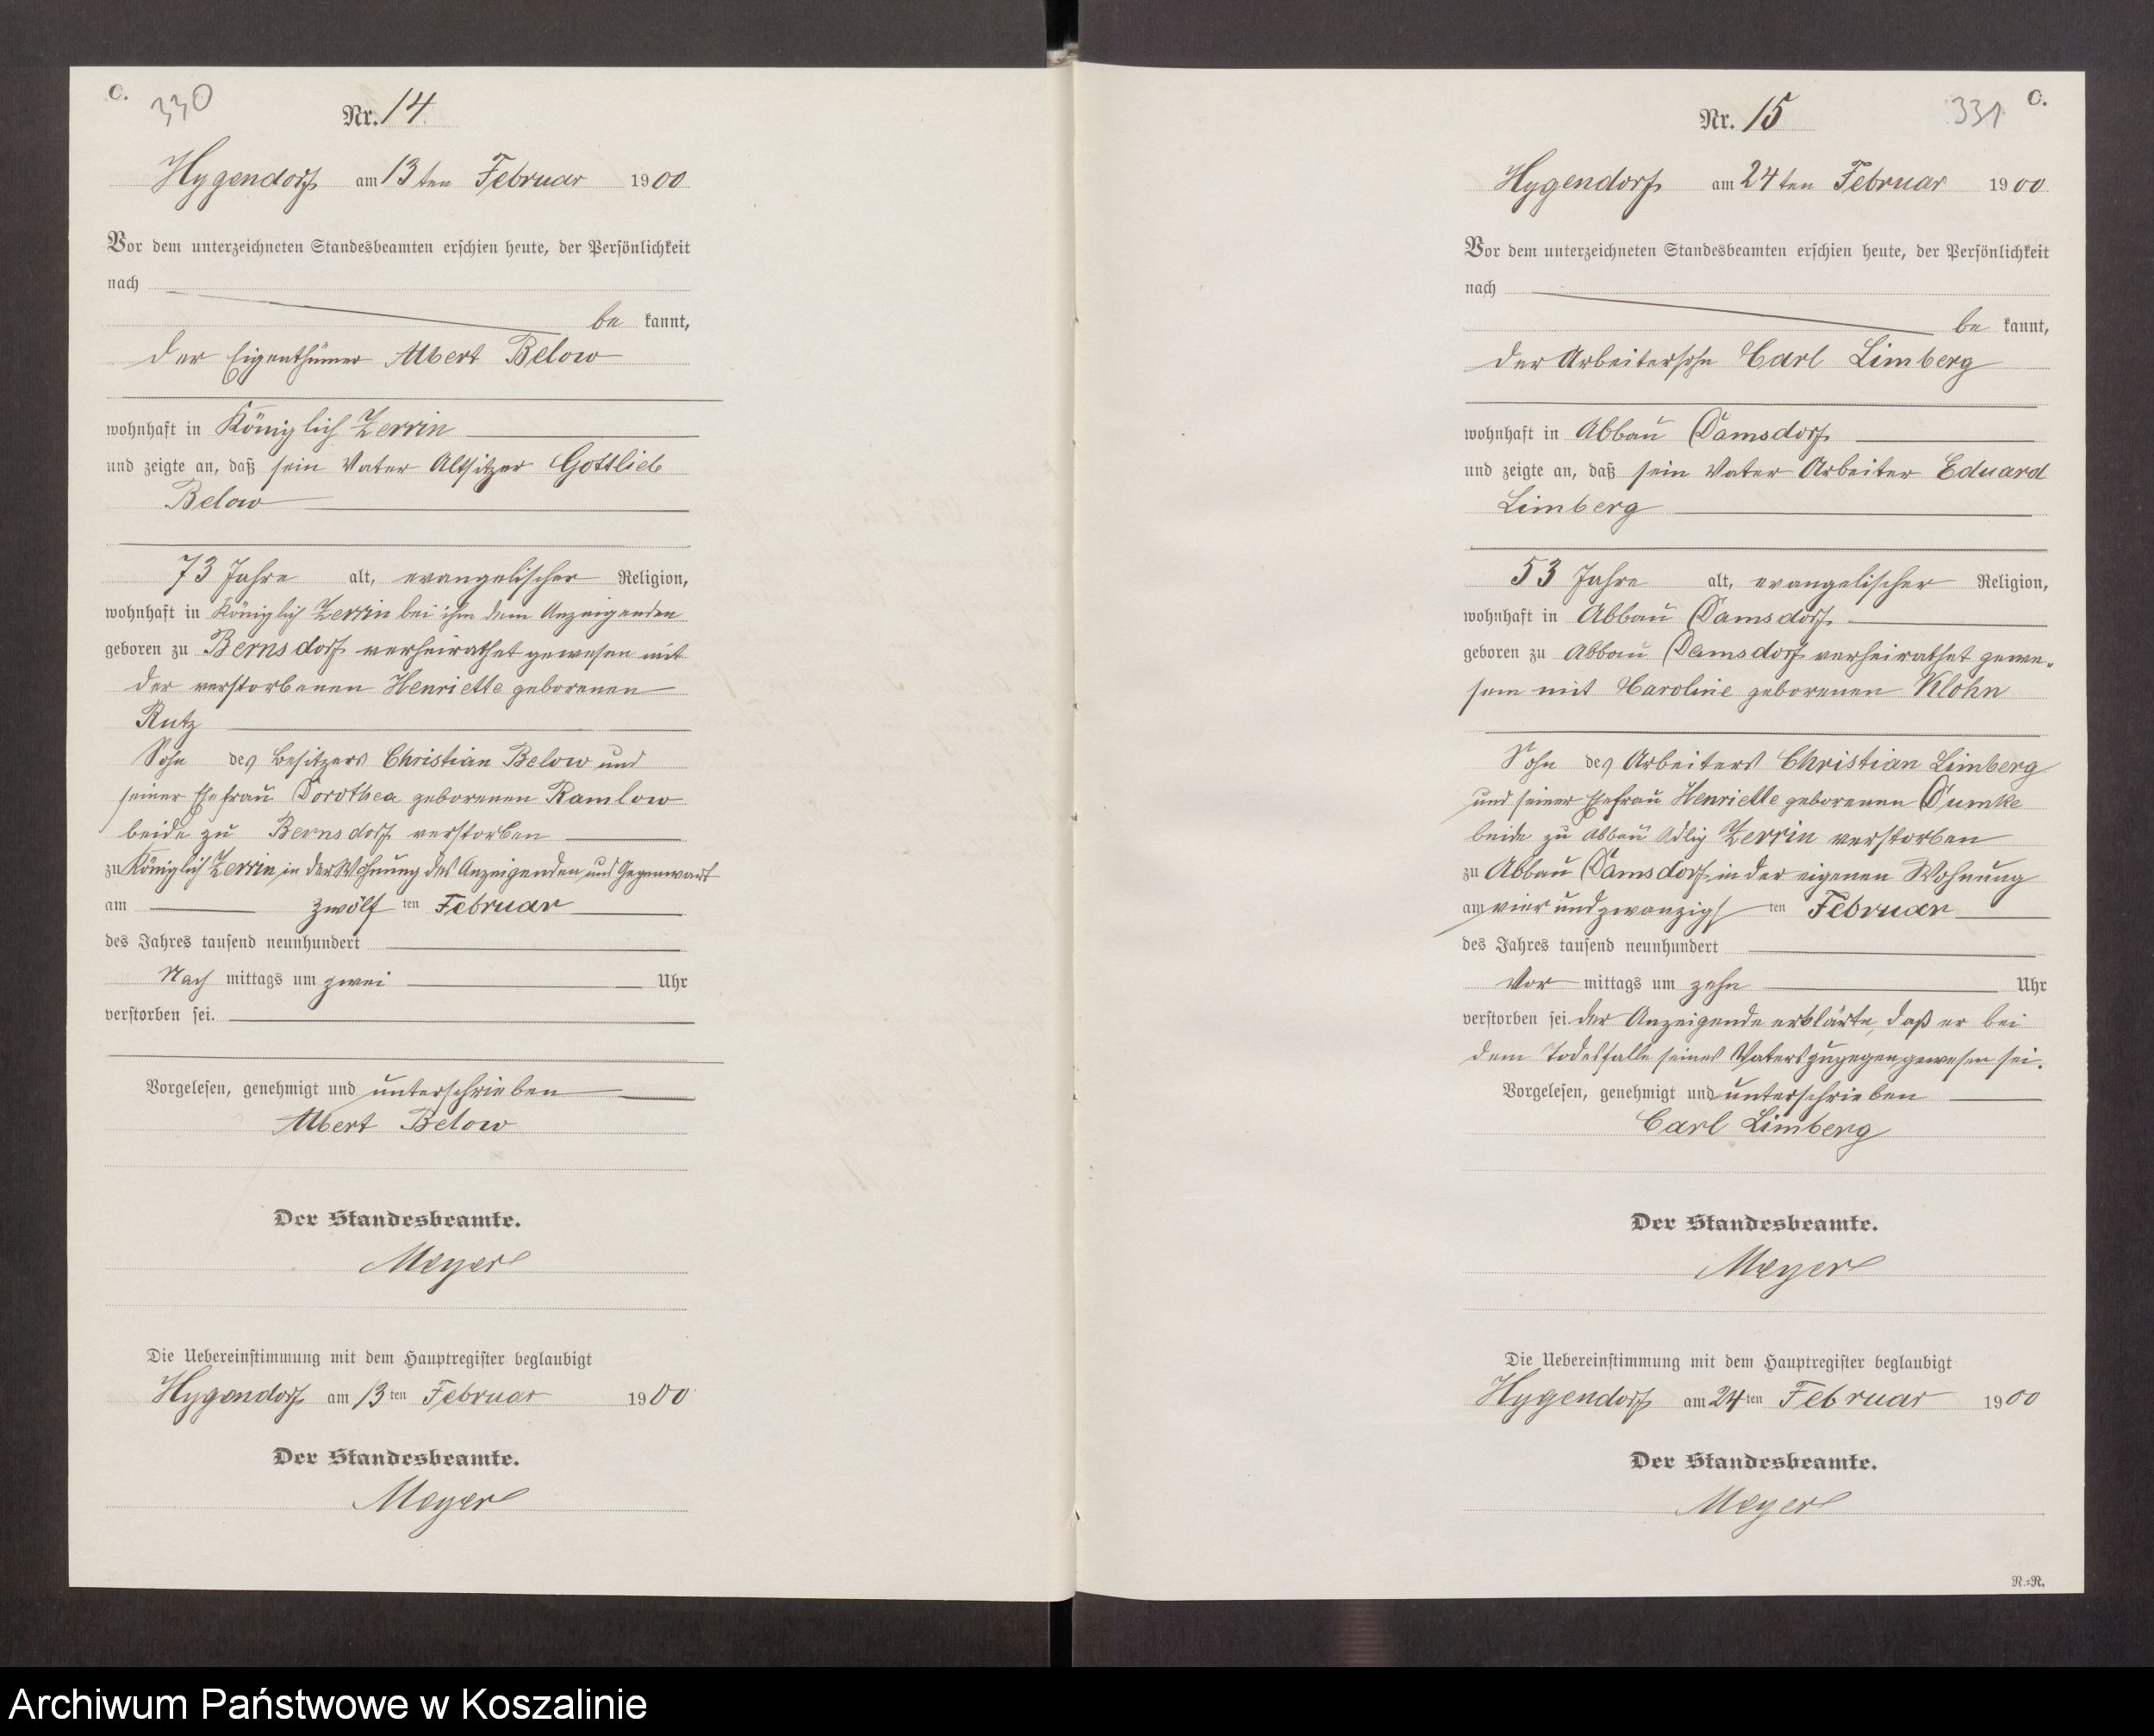 C.
330
Nr. 14.
Hygendorf am 13ten Februar 1900.
Vor dem unterzeichneten Standesbeamten erschien heute, der Persönlichkeit
nach
be kannt,
der Eigenthümer Albert Below
wohnhaft in Königlich Zerrin
und zeigte an, daß sein Vater Altsitzer Gottlieb
Below
73 Jahre alt, evangelischer Religion,
wohnhaft in Königlich Zerrin bei ihm dem Anzeigenden
geboren zu Bernsdorf verheirathet gewesen mit
der verstorbenen Henriette geborenen
Rutz
Sohn des Besitzers Christian Below und
seiner Ehefrau Dorothea geborenen Ramlow
beide zu Bernsdorf verstorben
zu Königlich Zerrin in der Wohnung des Anzeigenden und Gegenwart
am zwölf ten Februar
des Jahres tausend neunhundert
Nach mittags um zwei Uhr
verstorben sei.
Vorgelesen, genehmigt und unterschrieben
Albert Below
Der Standesbeamte.
Meyer
Die Uebereinstimmung mit dem Hauptregister beglaubigt
Hygendorf am 13ten Februar 1900
Der Standesbeamte.
Meyer
C.
331
Nr. 15
Hygendorf am 24ten Februar 1900
Vor dem unterzeichneten Standesbeamten erschien heute, der Persönlichkeit
nach
be kannt,
der Arbeitersohn Carl Limberg
wohnhaft in Abbau Damsdorf
und zeigte an, daß sein Vater Arbeiter Eduard
Limberg
53 Jahre alt, evangelischer Religion,
wohnhaft in Abbau Damsdorf
geboren zu Abbau Damsdorf verheirathet gewe-
sen mit Caroline geborenen Klohn
Sohn des Arbeiters Christian Limberg
und seiner Ehefrau Henriette geborenen Dumke
beide zu Abbau Adlig Zerrin verstorben
zu Abbau Damsdorf in der eigenen Wohnung
am vier und zwanzigs ten Februar
des Jahres tausend neunhundert
Vor mittags um zehn Uhr
verstorben sei der Anzeigende erklärte, daß er bei
dem Todesfalle seines Vaters zugegen gewesen sei.
Vorgelesen, genehmigt und unterschrieben
Carl Limberg
Der Standesbeamte.
Meyer
Die Uebereinstimmung mit dem Hauptregister beglaubigt
Hygendorf am 24ten Februar 1900
Der Standesbeamte.
Meyer
N.=N.
Archiwum Państwowe w Koszalinie